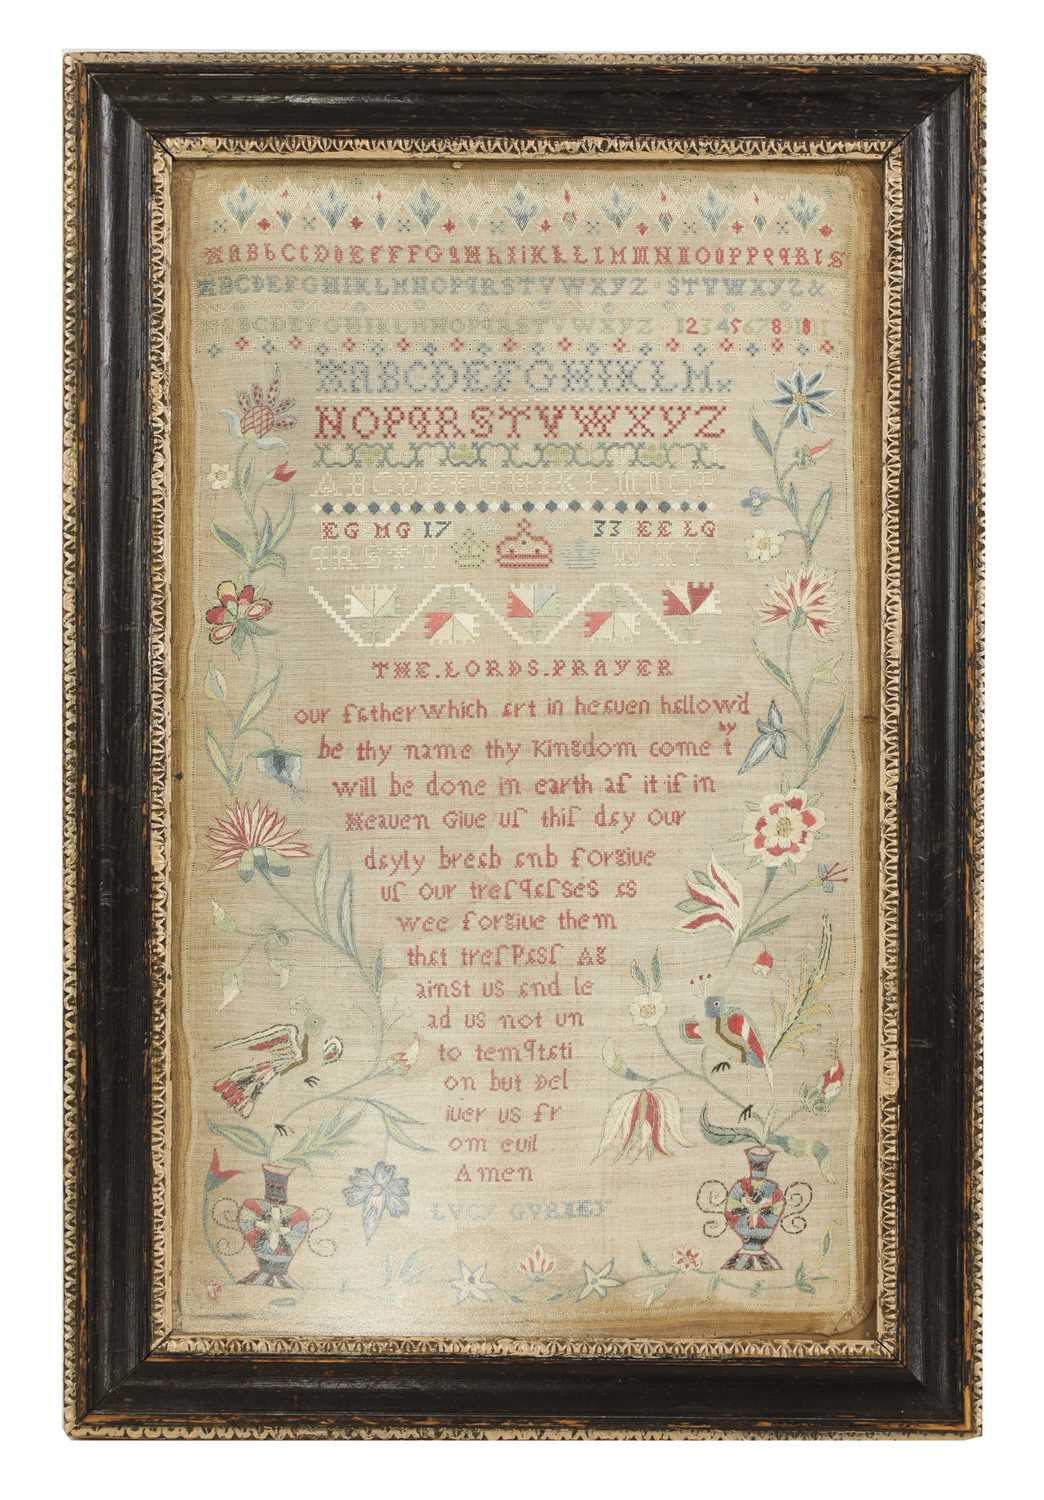 AaBbCcDdEeFfGgHhIiKkLlMmNnOoPpQqRrs
ABCDEFGHIKLMNOPQRSTVWXYZ STVWXYZ&
ABCDEFGHIKLMNOPQRSTVWXYZ 1234567891011
AABCDEFGHIKLM
NOPQRSTVWXYZ
ABCDEFGHIKLMNOP
EG MG 17 33 EE LG
QRSTV WXY
THE.LORDS.PRAYER
our father which art in heauen hallow'd
be thy name thy Kingdom come thy
will be done in earth aſ it iſ in
Heauen Giue uſ thiſ day our
dayly bread and forgiue
uſ our treſpaſses as
wee forgiue them
that treſPasſ Ag
ainst us and le
ad us not un
to temptati
on but Del
iuer us fr
om euil
Amen
LVCY GVRNEY